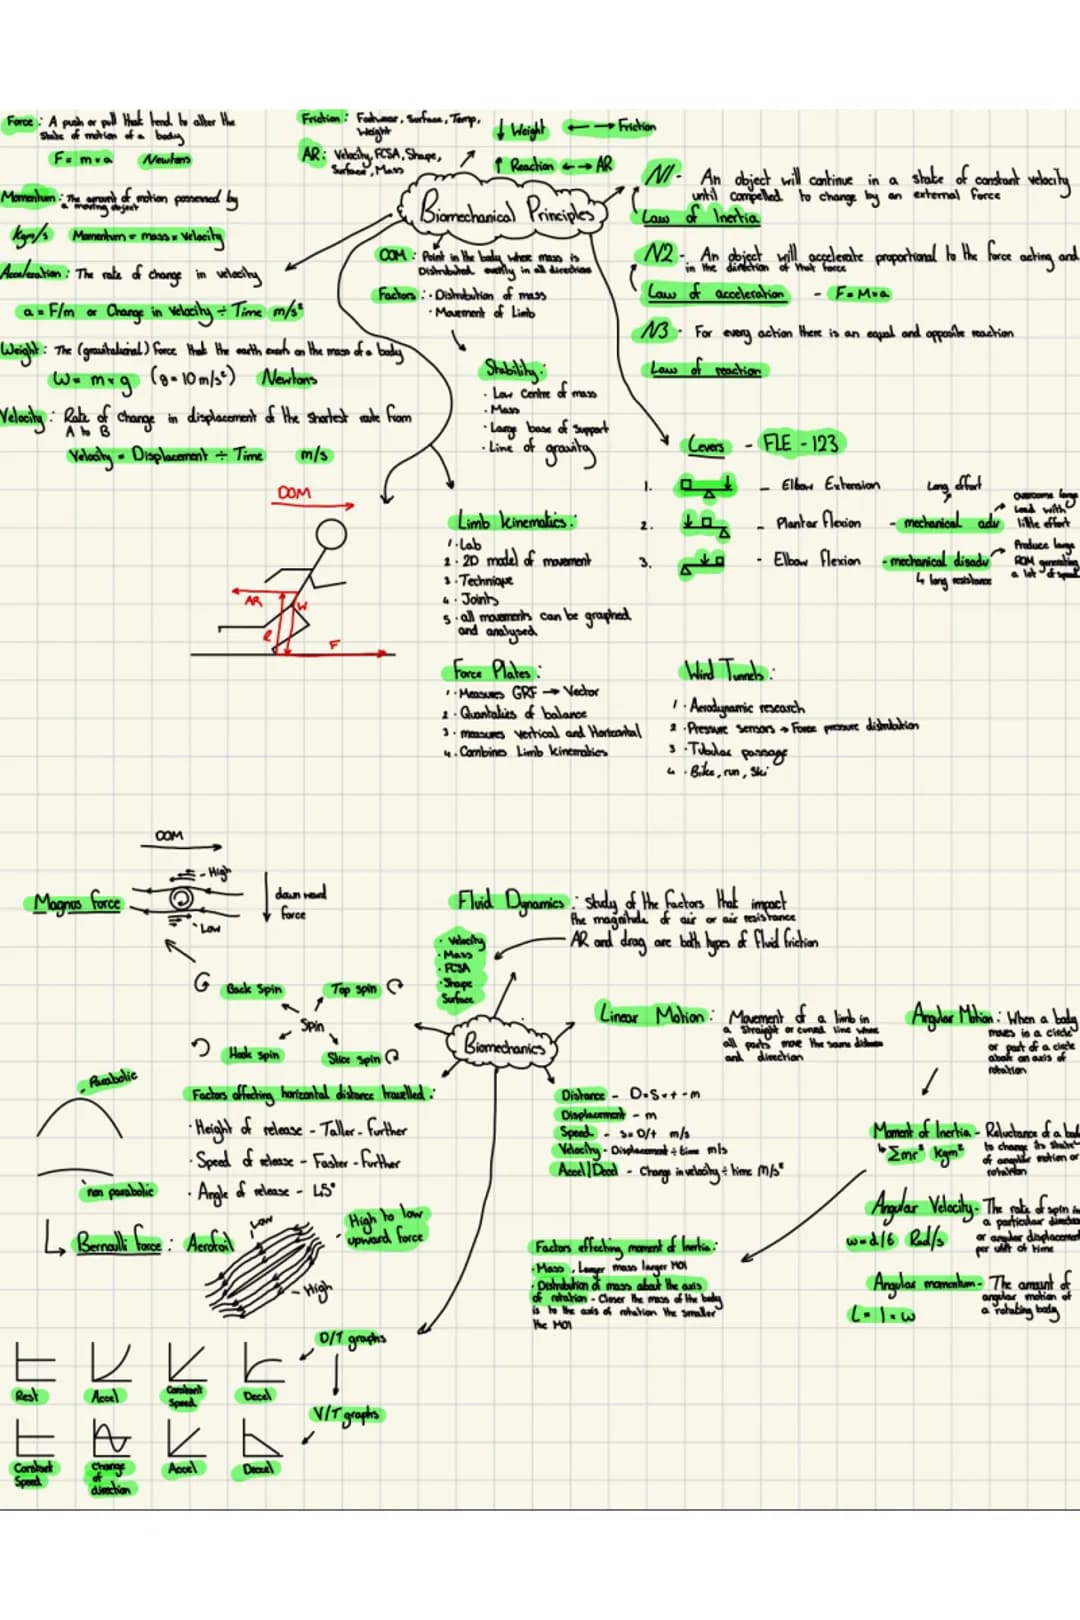 Force : A push or pull that tend to alter the
state of motion of a body
F = m × a Newtons
Momentum : The amount of motion possessed by
a moving object
Kgm/s Momentum = mass × velocity
Acceleration : The rate of change in velocity
a = F/m or Change in Velocity ÷ Time m/s²
Weight : The (gravitational) force that the earth exerts on the mass of a body
W = m × g (g = 10 m/s²) Newtons
Velocity : Rate of Change in displacement of the shortest route from
A to B
Velocity = Displacement ÷ Time m/s
Friction : Footwear, Surface, Temp,
Weight
AR : Velocity, FCSA, Shape,
Surface, Mass
↓ Weight ←→ Friction
↑ Reaction ←→ AR
Biomechanical Principles
COM : Point in the body where mass is
Distributed evenly in all directions
Factors : · Distribution of mass
· Movement of Limb
Stability :
· Low Centre of mass
· Mass
· Large base of support
· Line of gravity
N1 - An object will continue in a state of constant velocity
until compelled to change by an external force
Law of Inertia
N2 - An object will accelerate proportional to the force acting and
in the direction of that force
Law of acceleration - F = M × a
N3 - For every action there is an equal and opposite reaction
Law of reaction
Levers - FLE - 123
1. - Elbow Extension
Long effort
2. - Plantar flexion - mechanical adv
overcome large
load with
little effort
3. - Elbow flexion - mechanical disadv
↳ long resistance
Produce large
ROM generating
a lot of speed
DOM
AR
W
R
F
Limb Kinematics :
1 · Lab
2 · 2D model of movement
3 · Technique
4 · Joints
5 · all movements can be graphed
and analysed
Force Plates :
1 · Measures GRF → Vector
2 · Quantaties of balance
3 · measures vertical and Horizontal
4 · Combines Limb kinematics
Wind Tunnels :
1 · Aerodynamic research
2 · Pressure sensors → Force pressure distribution
3 · Tubular passage
4 · Bike, run, Ski
DOM
Magnus force
- High
- Low
down ward
force
Back Spin
Top spin
Spin
Hook spin
Slice spin
Fluid Dynamics : Study of the factors that impact
the magnitude of air or air resistance
AR and drag are both types of fluid friction
· Velocity
· Mass
· FCSA
· Shape
Surface
Biomechanics
Linear Motion : Movement of a limb in
a straight or curved line where
all parts move the same distance
and direction
Angular Motion : When a body
moves in a circle
or part of a circle
about an axis of
rotation
- Parabolic
non parabolic
Factors affecting horizontal distance travelled :
· Height of release - Taller - further
· Speed of release - Faster - further
· Angle of release - 45°
Bernoulli force : Aerofoil
Low
- High
- High to low
upward force
Distance - D = S × t - m
Displacement - m
Speed - S = D/t m/s
Velocity - Displacement ÷ time m/s
Accel/Decel - Change in velocity ÷ time m/s²
Moment of Inertia - Reluctance of a body
to change its state
of angular motion or
rotation
↳ Σmr² Kgm²
Angular Velocity - The rate of spin in
a particular direction
or angular displacement
per unit of time
ω = d/t Rad/s
Angular momentum - The amount of
angular motion of
a rotating body
L = I × ω
Factors effecting moment of Inertia :
· Mass, Larger mass larger MOI
· Distribution of mass about the axis
of rotation - Closer the mass of the body
is to the axis of rotation the smaller
the MOI
D/T graphs
Rest Accel Constant Speed Decel
V/T graphs
Constant Speed Change of direction Accel Decel